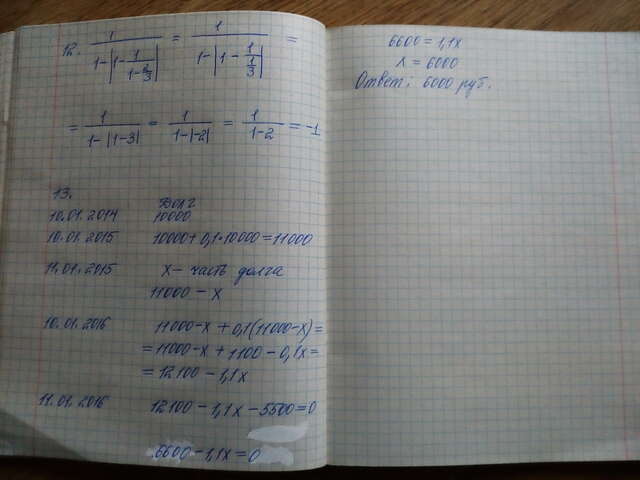 12. 1/(1-|1-1/(1-2/3)|) = 1/(1-|1-1/(1/3)|) =
= 1/(1-|1-3|) = 1/(1-|-2|) = 1/(1-2) = -1
13.
Долг
10.01.2014 10000
10.01.2015 10000+0,1·10000=11000
11.01.2015 x- часть долга
11000-x
10.01.2016 11000-x+0,1(11000-x)=
=11000-x+1100-0,1x=
=12100-1,1x
11.01.2016 12100-1,1x-5500=0
6600-1,1x=0
6600=1,1x
x=6000
Ответ: 6000 руб.